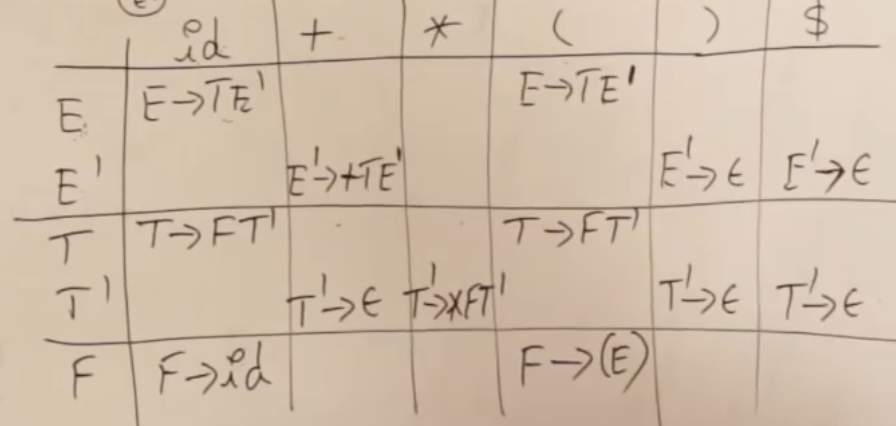 id + * ( ) $
E E→TE' E→TE'
E' E'→+TE' E'→ϵ E'→ϵ
T T→FT' T→FT'
T' T'→ϵ T'→*FT' T'→ϵ T'→ϵ
F F→id F→(E)